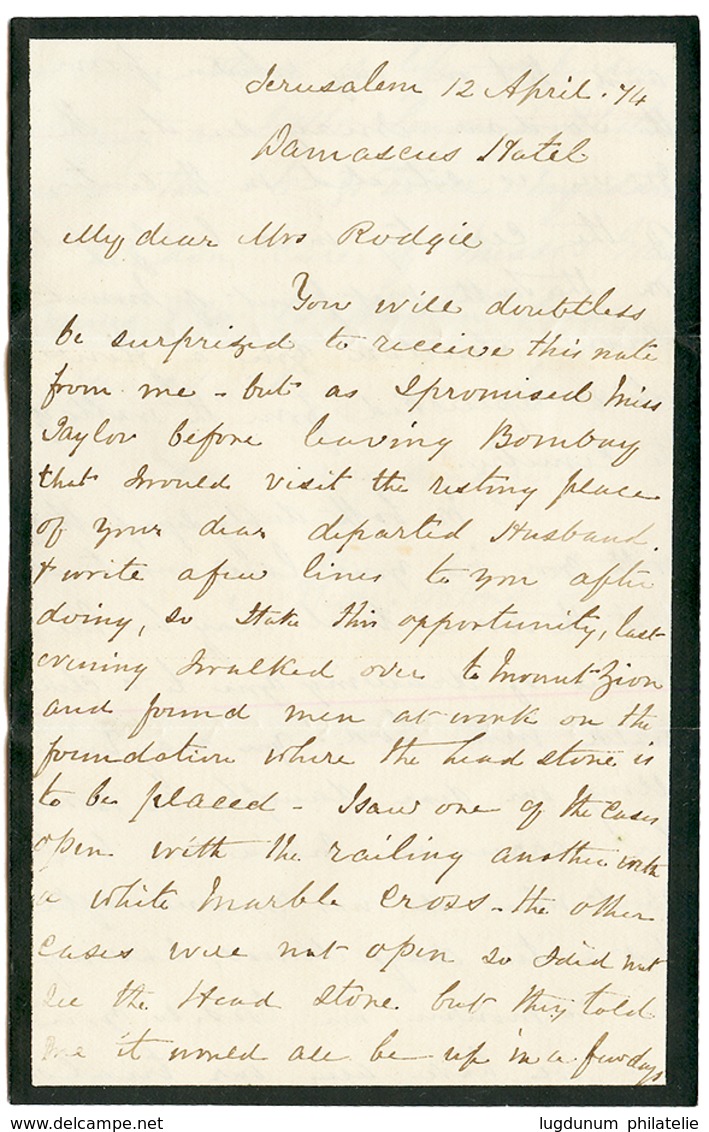 Jerusalem 12 April. 74
Damascus Hotel
My dear Mrs Rodgie
You will doubtless
be surprized to receive this note
from me - but as I promised Miss
Taylor before leaving Bombay
that I would visit the resting place
of your dear departed Husband
& write a few lines to you after
doing, so I take this opportunity, last
evening I walked over to Mount Zion
and found men at work on the
foundation where the head stone is
to be placed - I saw one of the cases
open with the railing another with
a white marble cross - the other
cases were not open so I did not
see the Head stone but they told
me it would all be up in a few days
lugdunum philatelie